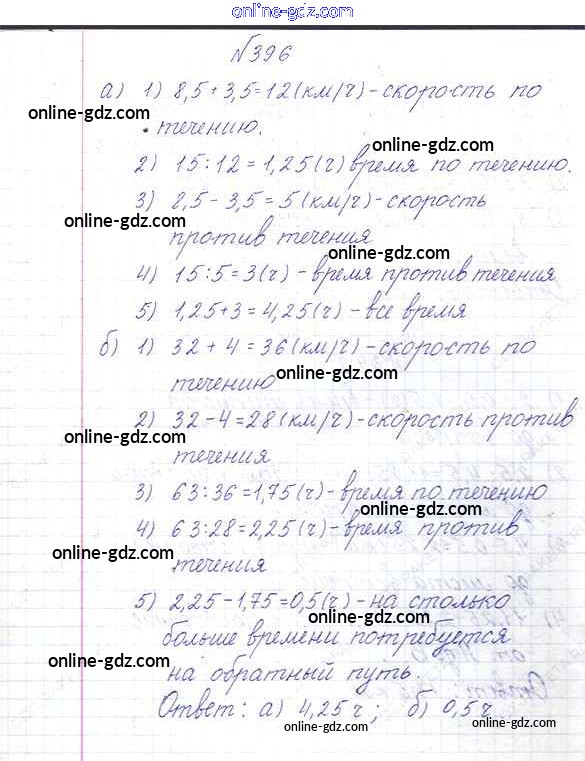 online-gdz.com
№396
а) 1) 8,5 + 3,5 = 12 (км/ч) - скорость по
online-gdz.com
течению.
online-gdz.com
2) 15 : 12 = 1,25 (ч) время по течению.
3) 8,5 - 3,5 = 5 (км/ч) - скорость
online-gdz.com
против течения
online-gdz.com
4) 15 : 5 = 3 (ч) - время против течения
online-gdz.com
5) 1,25 + 3 = 4,25 (ч) - все время
б) 1) 32 + 4 = 36 (км/ч) - скорость по
online-gdz.com
течению
2) 32 - 4 = 28 (км/ч) - скорость против
online-gdz.com
течения
3) 63 : 36 = 1,75 (ч) - время по течению
online-gdz.com
4) 63 : 28 = 2,25 (ч) - время против
online-gdz.com
течения
5) 2,25 - 1,75 = 0,5 (ч) - на столько
online-gdz.com
больше времени потребуется
online-gdz.com
на обратный путь.
Ответ: а) 4,25 ч ; б) 0,5 ч
online-gdz.com
online-gdz.com